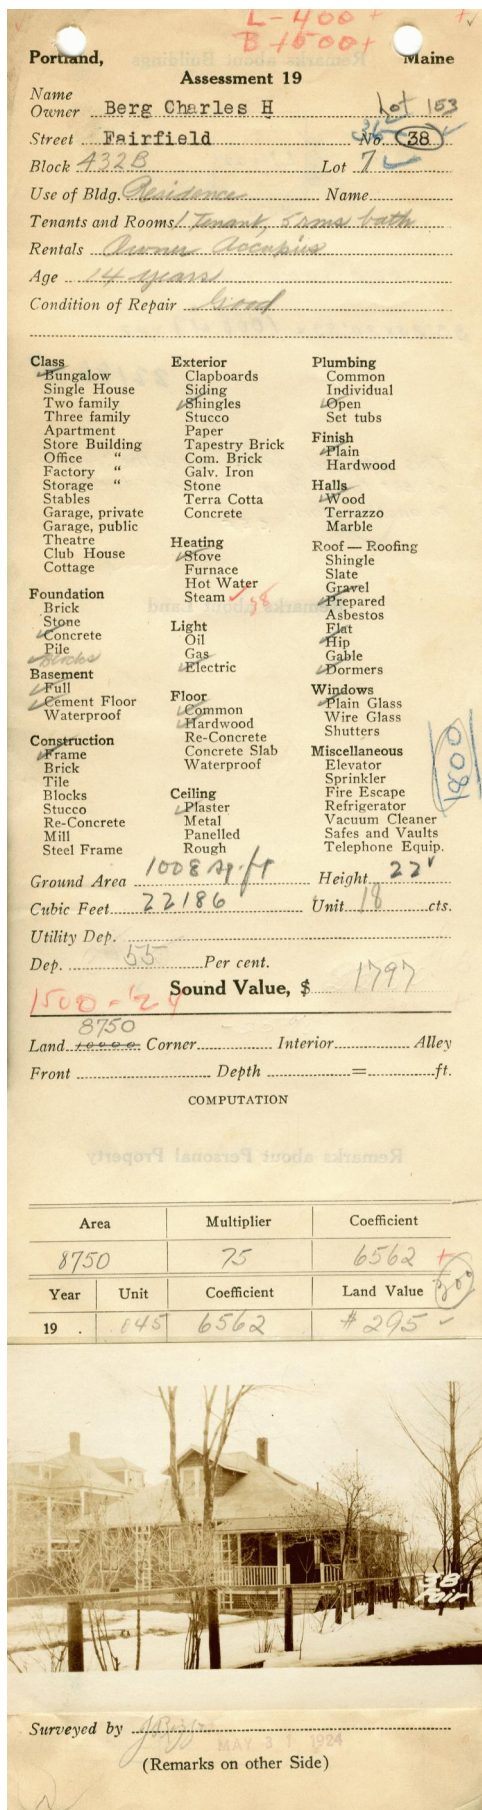 L-400+
B+1500+
Portland, Maine
Assessment 19
Name
Owner Berg Charles H Lot 153
Street Fairfield 36 No. 38
Block 432B Lot 7
Use of Bldg. Residence Name
Tenants and Rooms 1 Tenant, 5 rms bath
Rentals Owner Occupies
Age 14 years
Condition of Repair Good
Class
Bungalow
Single House
Two family
Three family
Apartment
Store Building
Office "
Factory "
Storage "
Stables
Garage, private
Garage, public
Theatre
Club House
Cottage
Foundation
Brick
Stone
Concrete
Pile
Blocks
Basement
Full
Cement Floor
Waterproof
Construction
Frame
Brick
Tile
Blocks
Stucco
Re-Concrete
Mill
Steel Frame
Exterior
Clapboards
Siding
Shingles
Stucco
Paper
Tapestry Brick
Com. Brick
Galv. Iron
Stone
Terra Cotta
Concrete
Heating
Stove
Furnace
Hot Water
Steam 38
Light
Oil
Gas
Electric
Floor
Common
Hardwood
Re-Concrete
Concrete Slab
Waterproof
Ceiling
Plaster
Metal
Panelled
Rough
Plumbing
Common
Individual
Open
Set tubs
Finish
Plain
Hardwood
Halls
Wood
Terrazzo
Marble
Roof — Roofing
Shingle
Slate
Gravel
Prepared
Asbestos
Flat
Hip
Gable
Dormers
Windows
Plain Glass
Wire Glass
Shutters
Miscellaneous
Elevator
Sprinkler
Fire Escape
Refrigerator
Vacuum Cleaner
Safes and Vaults
Telephone Equip.
1800
Ground Area 1008 sq. ft Height 22
Cubic Feet 22186 Unit 18 cts.
Utility Dep.
Dep. 55 Per cent.
Sound Value, $ 1797
1500 - '24
8750
Land 10000 Corner Interior Alley
Front Depth = ft.
COMPUTATION
Area Multiplier Coefficient
8750 75 6562 +
Year Unit Coefficient Land Value 300
19 . .045 6562 # 295
38
Fair
Surveyed by
MAY 31 1924
(Remarks on other Side)